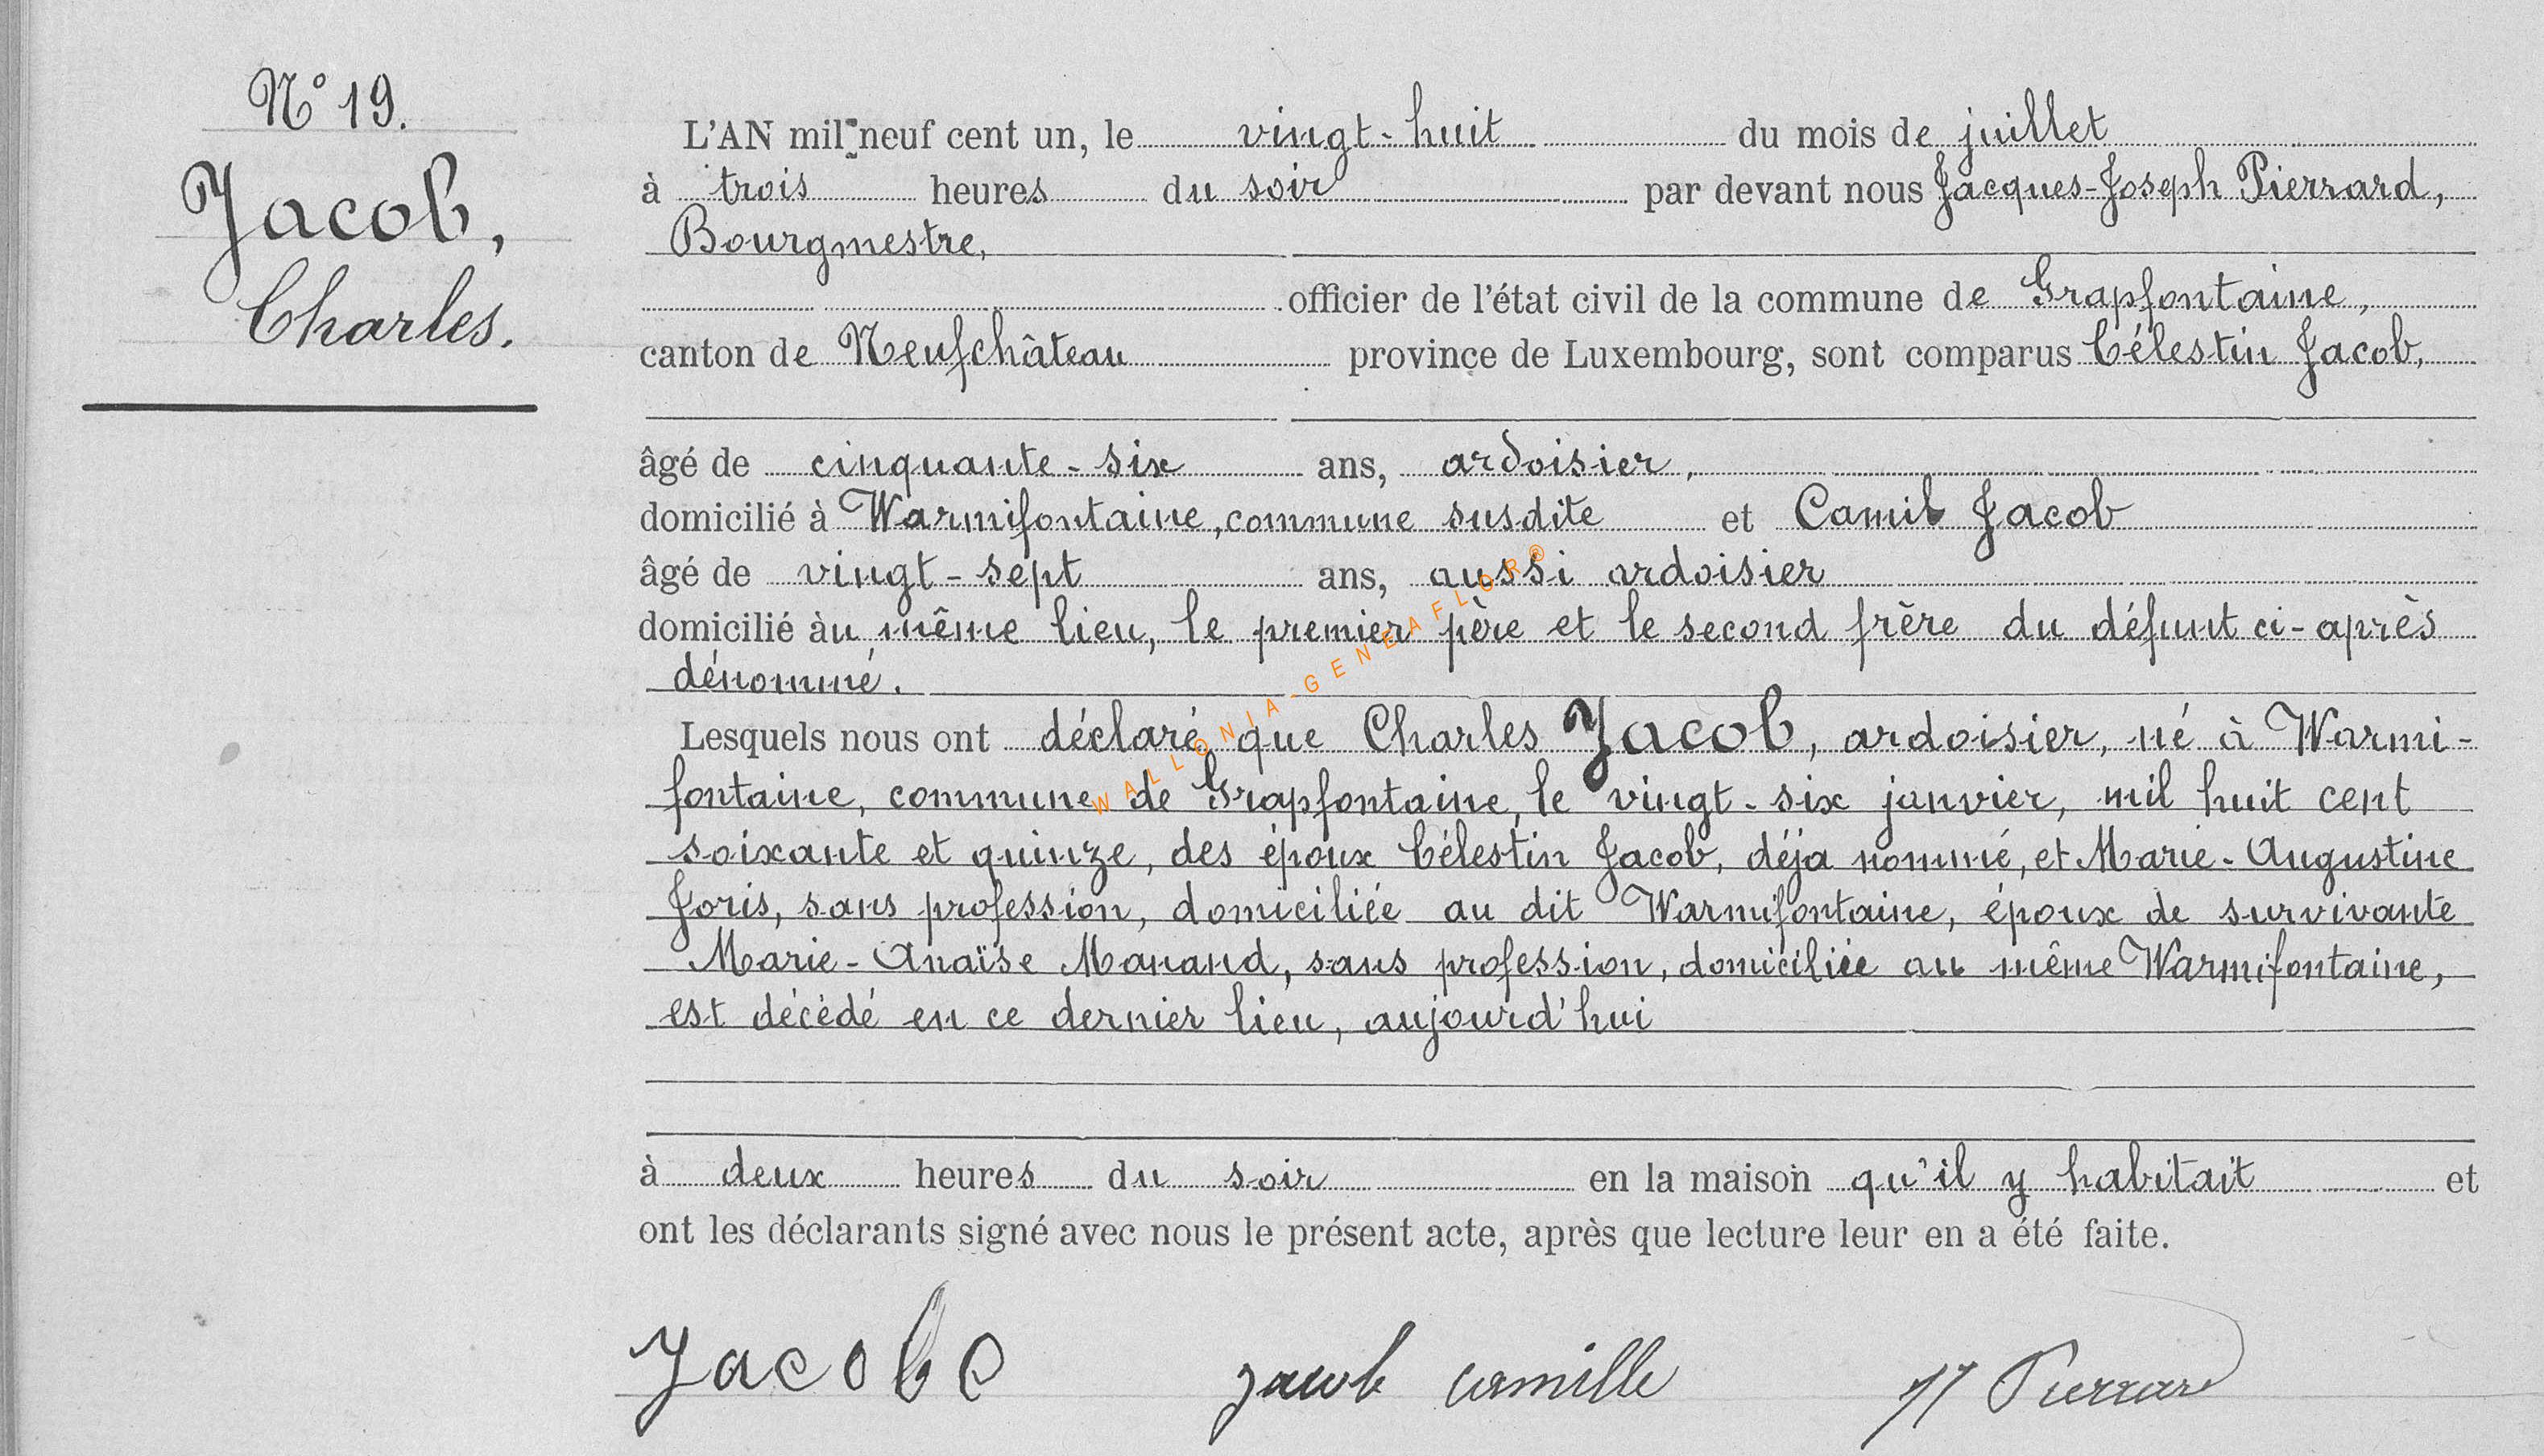 N° 19.
Jacob,
Charles.
L'AN mil neuf cent un, le vingt-huit du mois de juillet
à trois heures du soir par devant nous Jacques-Joseph Pierrard,
Bourgmestre,
officier de l'état civil de la commune de Grapfontaine,
canton de Neufchâteau province de Luxembourg, sont comparus Célestin Jacob,
âgé de cinquante-six ans, ardoisier,
domicilié à Warmifontaine, commune susdite et Camil Jacob
âgé de vingt-sept ans, aussi ardoisier
domicilié àu même lieu, le premier père et le second frère du défunt ci-après
dénommé.
Lesquels nous ont déclaré que Charles Jacob, ardoisier, né à Warmi-
fontaine, commune de Grapfontaine, le vingt-six janvier, mil huit cent
soixante et quinze, des époux Célestin Jacob, déja nommé, et Marie-Augustine
Joris, sans profession, domiciliée au dit Warmifontaine, époux de survivante
Marie-Anaïse Manand, sans profession, domiciliée au même Warmifontaine,
est décédé en ce dernier lieu, aujourd'hui
à deux heures du soir en la maison qu'il y habitait et
ont les déclarants signé avec nous le présent acte, après que lecture leur en a été faite.
Jacob C
Jacob Camille
JJ Pierrard
WALLONIA-GENEAFLOR®